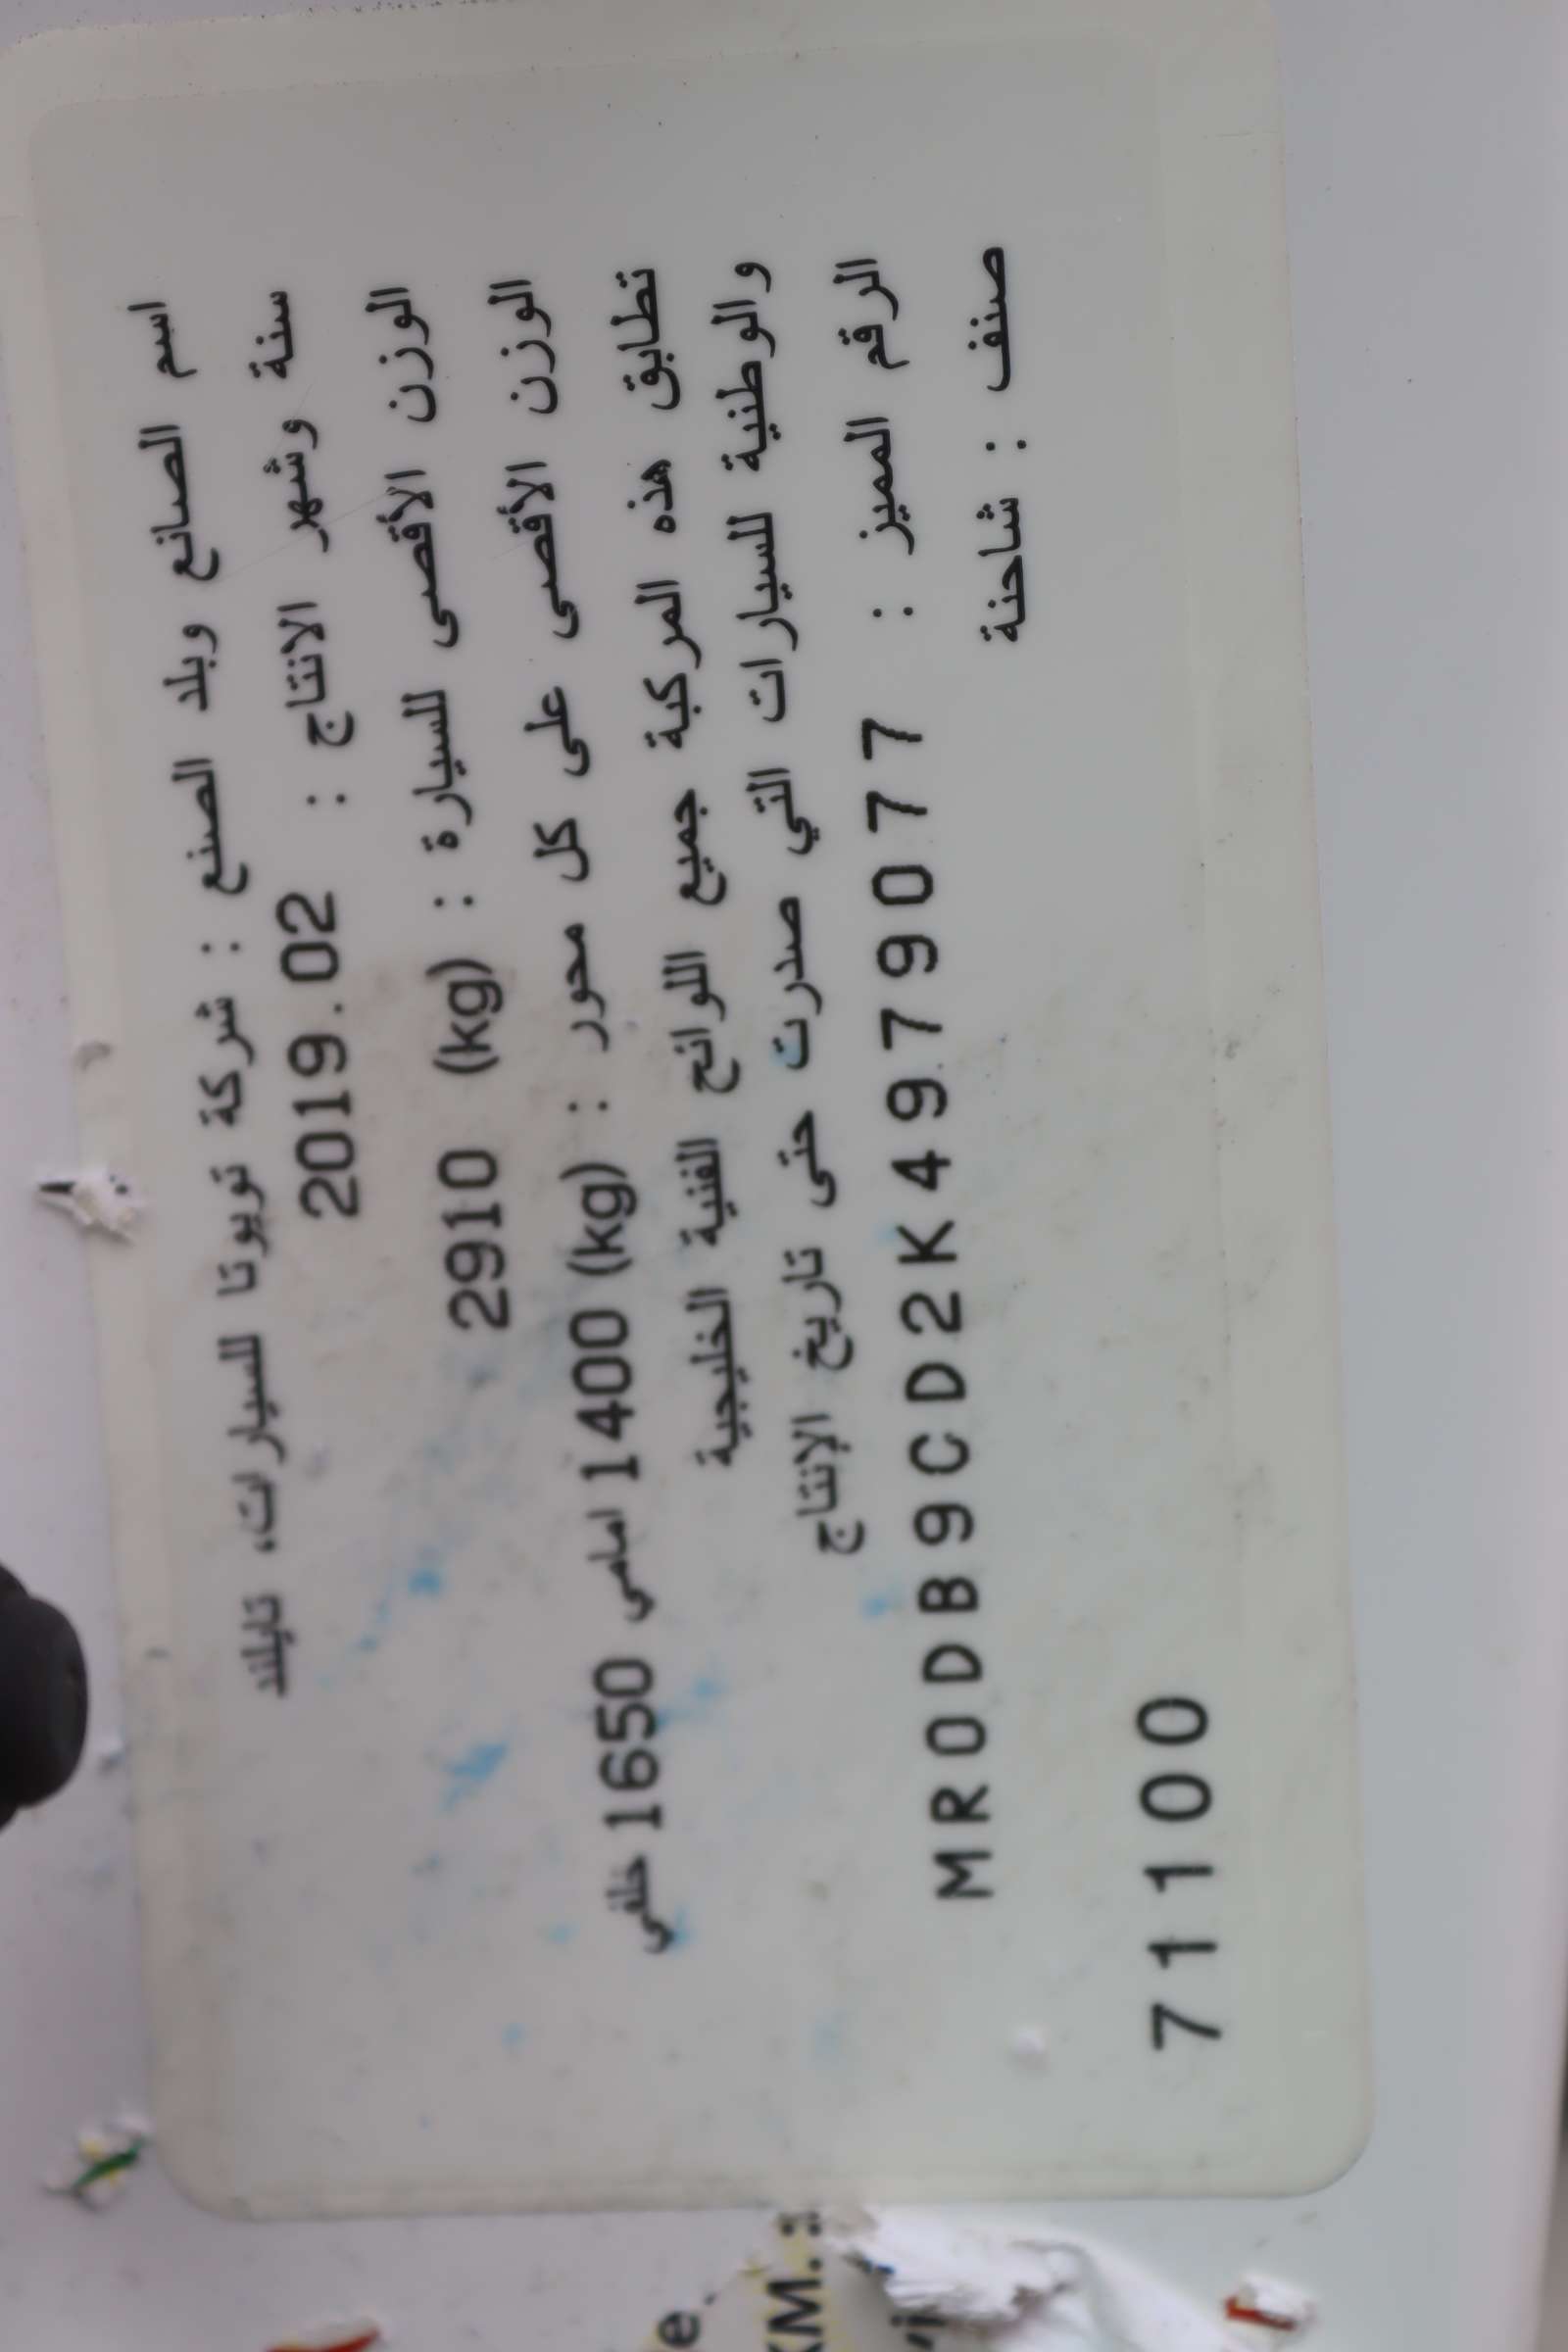 اسم الصانع وبلد الصنع : شركة تويوتا للسيارات، تايلند
سنة وشهر الانتاج : 2019.02
الوزن الأقصى للسيارة : (kg) 2910
الوزن الأقصى على كل محور : (kg) 1400 امامي 1650 خلفي
تطابق هذه المركبة جميع اللوائح الفنية الخليجية
والوطنية للسيارات التي صدرت حتى تاريخ الإنتاج
الرقم المميز : MR0DB9CD2K4979077
صنف : شاحنة
71100
KM. :